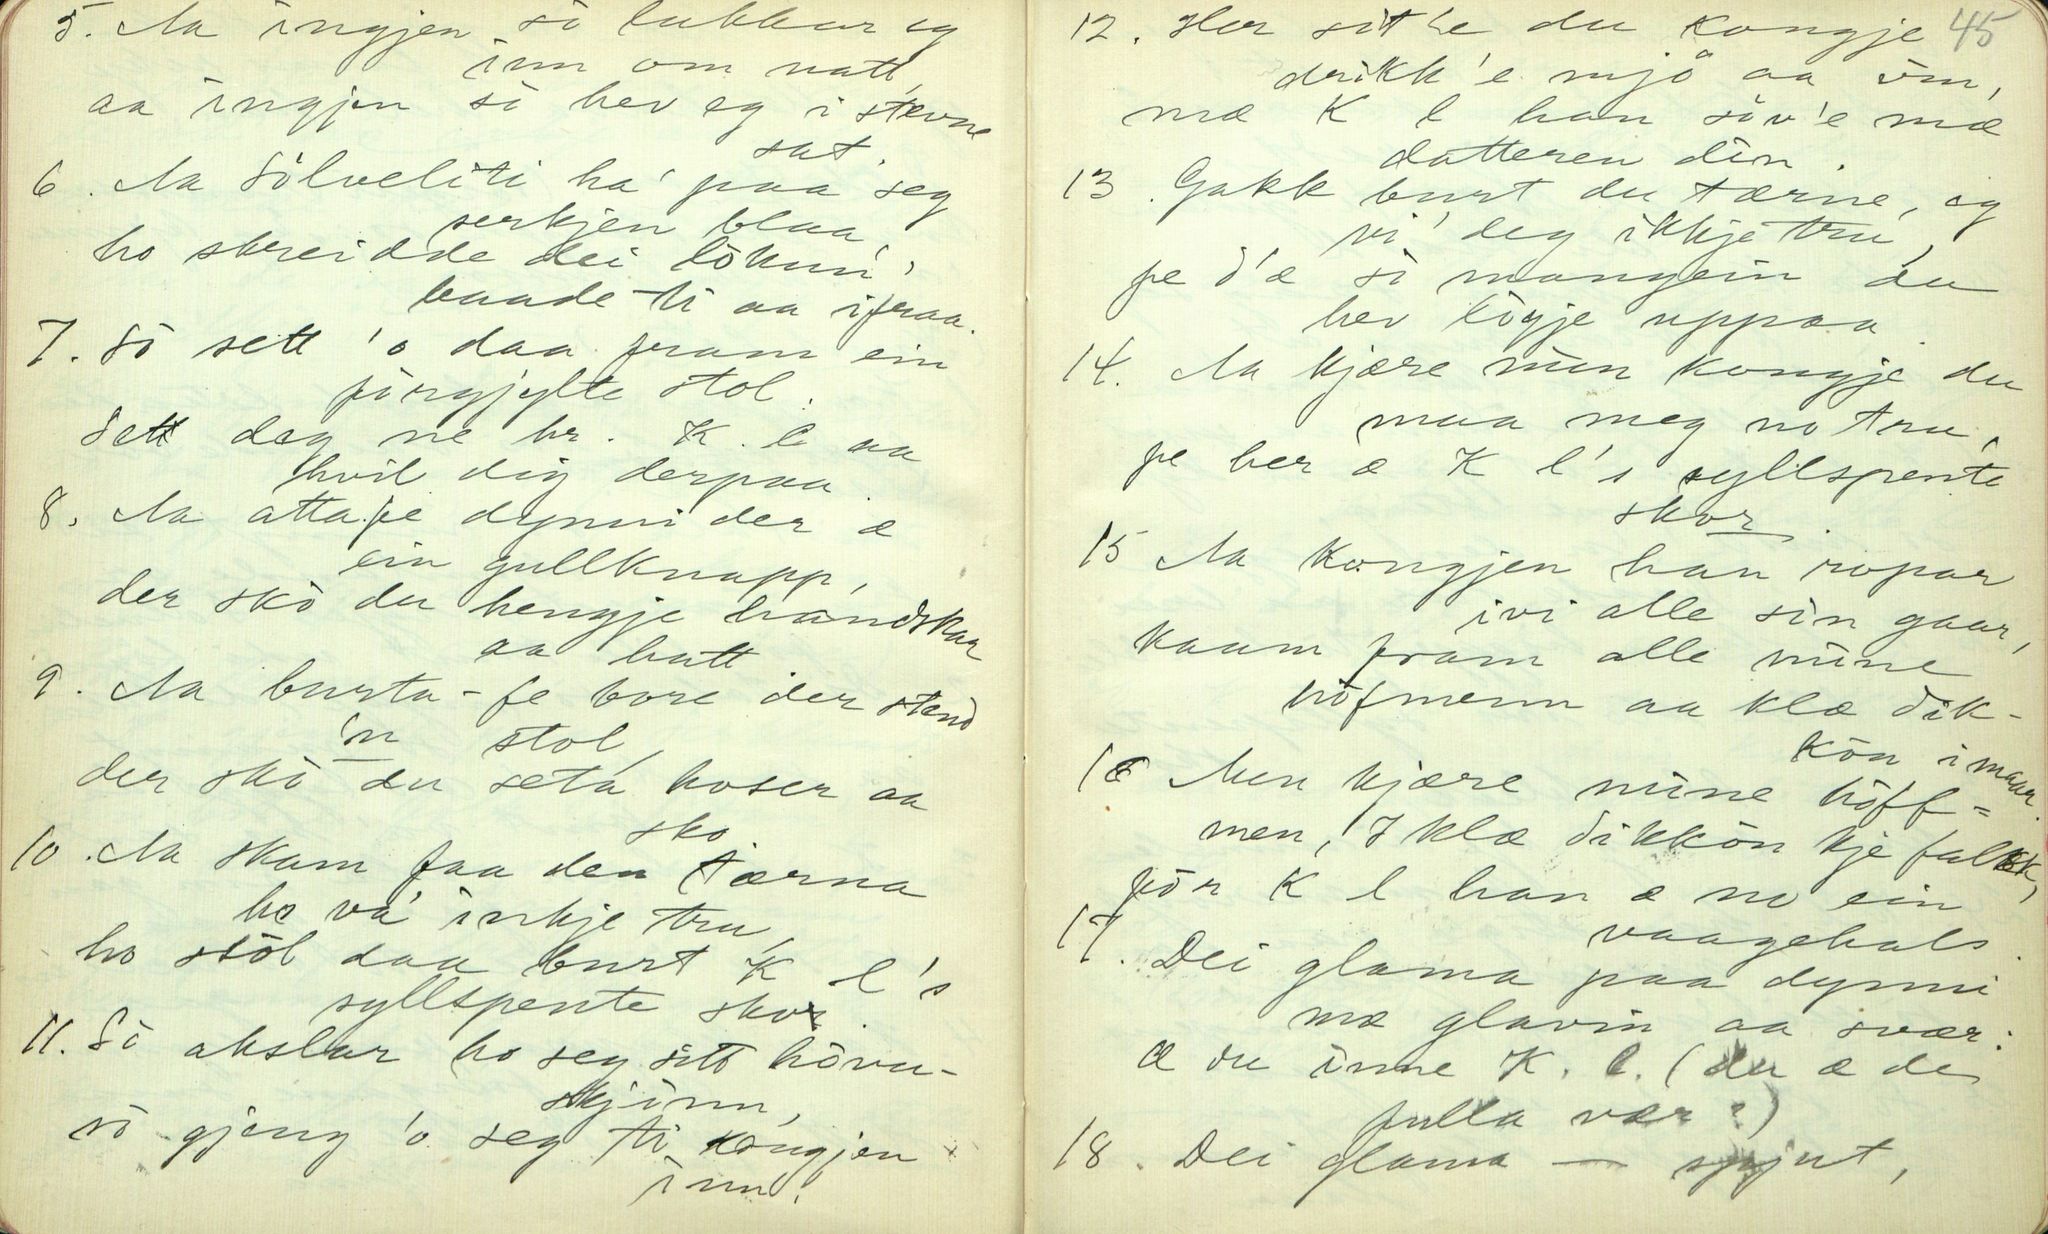 5. Aa ingjen så lukkar eg
inn om natt,
aa ingjen så hev eg i stevne
sat.
6. Aa Sölveliti ha' paa seg
serkjen blaa,
ho skreidde dei lökun'
baade ti aa ifraa.
7. Så sett 'o daa fram ein
förgjylte stol.
Sett deg ne hr. K. l aa
hvil dig derpaa.
8. Aa attafe dynni der æ
ein gullknapp,
der skö du hengje handskar
aa hatt
9. Aa burta-fe bore der stend
'n stol,
der skö du seta hoser aa
sko.
10. Aa skam faa den tærna
ho va' inkje tru,
ho stöl daa burt K l's
syllspente skor.
11. Så akslar ho seg sitt hövu-
skjinn,
så gjeng 'o seg ti kongjen
inn.
45
12. Her sit'e du kongje
drikk'e mjö aa vin,
mæ K l han söv'e mæ
datteren din.
13. Gakk burt du tærne, eg
vi' deg ikkje tru,
fe d'æ så mangein du
hev lögje uppaa.
14. Aa kjære min kongje du
maa meg no tru,
fe her æ K l's syllspente
skor.
15 Aa Kongjen han ropar
ivi alle sin gaar,
kaam fram alle mine
höfmenn aa klæ dik-
kön i maar.
16 Men kjære mine höff=
men, I klæ dikkön kje falkk,
för K l han æ no ein
vaagehals.
17. Dei glama paa dynni
mæ glavin aa svær:
Æ du inne K. l. (du æ de
fulla vær?)
18. Dei glama — spjut,